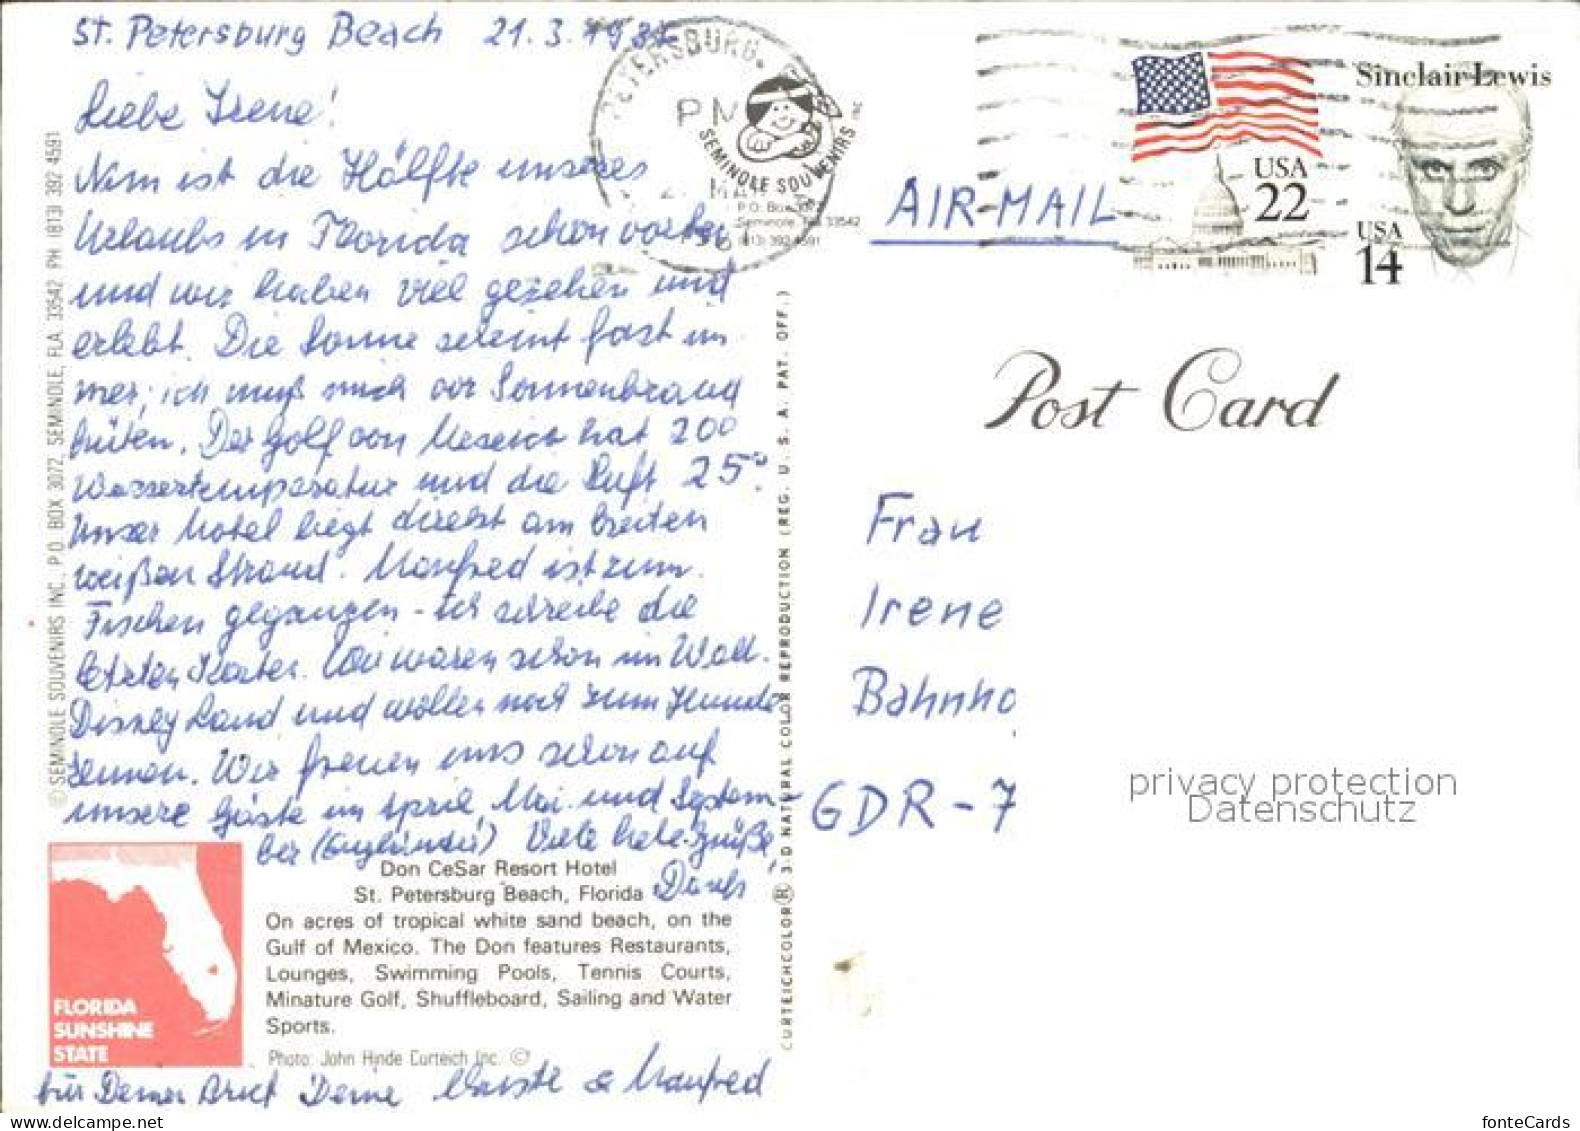 St. Petersburg Beach 21.3.198
Liebe Irene!
Nun ist die Hälfte unseres
Urlaubs in Florida schon vorbei
und wir haben viel gesehen und
erlebt. Die Sonne scheint fast im
mer, ich muß mich vor Sonnenbrand
hüten. Der Golf von Mexico hat 20°
Wassertemperatur und die Luft 25°.
Unser Motel liegt direkt am breiten
weißen Strand. Manfred ist zum
Fischen gegangen - ich schreibe die
letzten Karten. Wir waren schon im Walt
Disney Land und wollen noch zum
Wir freuen uns schon auf
unsere Gäste im April, Mai und Septem-
ber (Engländer) Viele liebe Grüße,
Dank
für Deinen Brief Deine & Manfred
Don CeSar Resort Hotel
St. Petersburg Beach, Florida
On acres of tropical white sand beach, on the
Gulf of Mexico. The Don features Restaurants,
Lounges, Swimming Pools, Tennis Courts,
Minature Golf, Shuffleboard, Sailing and Water
Sports.
Photo: John Hinde Curteich Inc. ©
FLORIDA
SUNSHINE
STATE
© SEMINOLE SOUVENIRS INC., P.O. BOX 3072, SEMINOLE, FLA. 33542 PH (813) 392 4591
CURTEICHCOLOR® 3-D NATURAL COLOR REPRODUCTION (REG. U. S. A. PAT. OFF.)
PETERSBURG,
PM
MAR
SEMINOLE SOUVENIRS INC
P.O. Box 3072
Seminole, Fla 33542
(813) 392 4591
AIR-MAIL
USA
22
Sinclair Lewis
USA
14
Post Card
Frau
Irene
Bahnho
GDR-7
privacy protection
Datenschutz
fonteCards